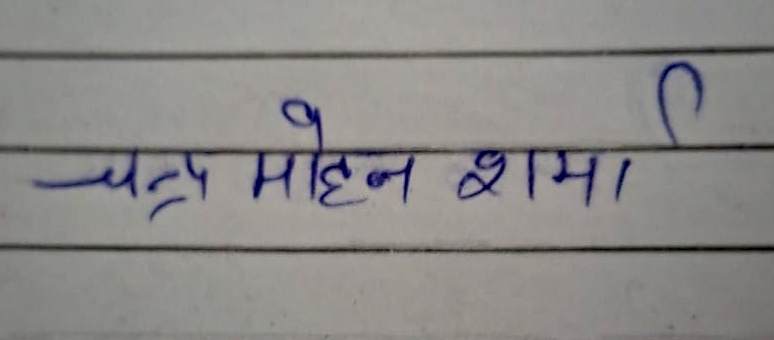 चन्द्र मोहन शर्मा